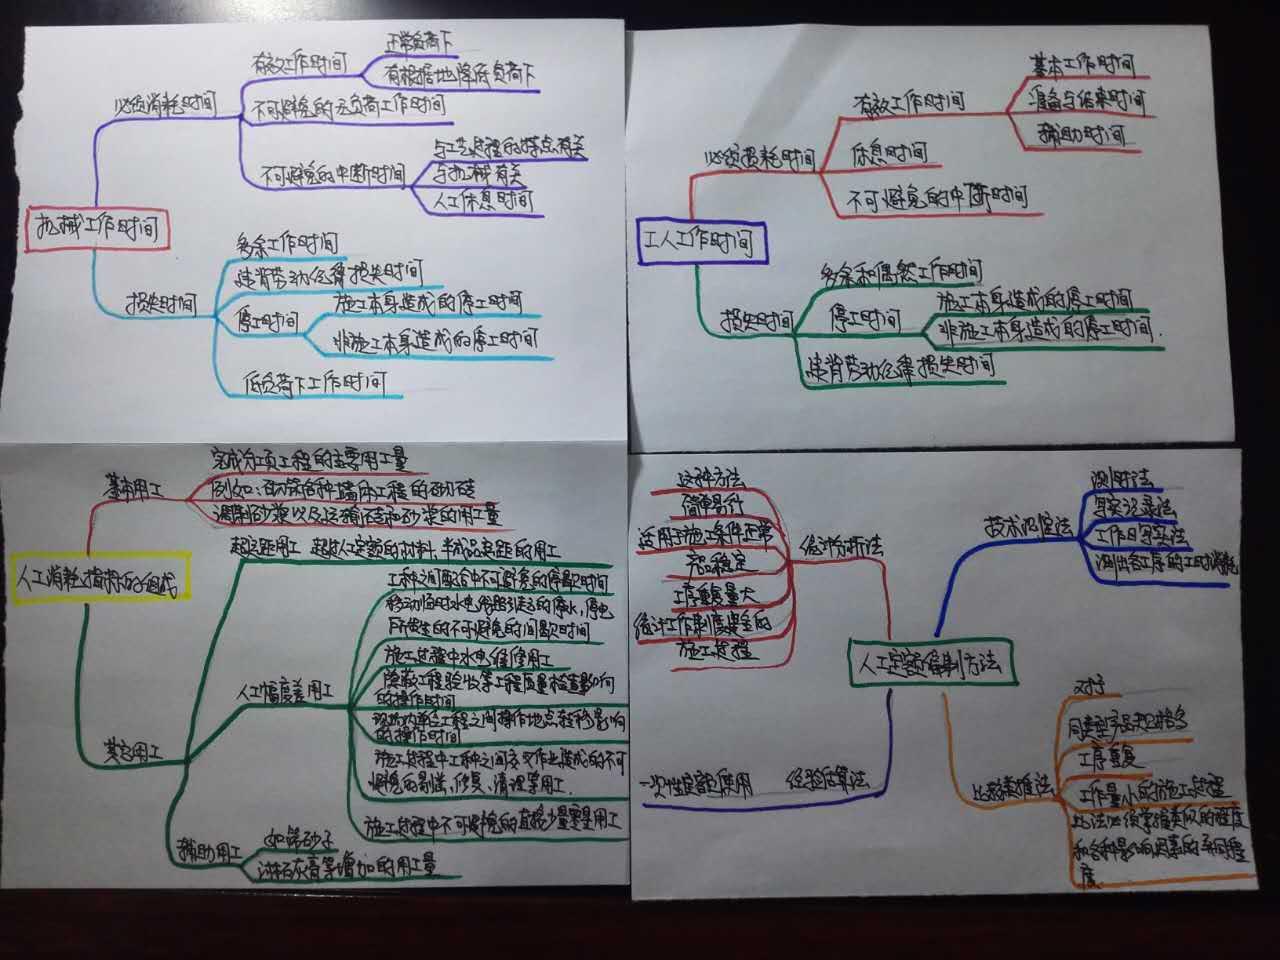 机械工作时间
必须消耗时间
有效工作时间
正常负荷下
有根据地降低负荷下
不可避免的无负荷工作时间
不可避免的中断时间
与工艺过程的特点有关
与机械有关
人工休息时间
损失时间
多余工作时间
违背劳动纪律损失时间
停工时间
施工本身造成的停工时间
非施工本身造成的停工时间
低负荷下工作时间
工人工作时间
必须损耗时间
有效工作时间
基本工作时间
准备与结束时间
辅助时间
休息时间
不可避免的中断时间
损失时间
多余和偶然工作时间
停工时间
施工本身造成的停工时间
非施工本身造成的停工时间.
违背劳动纪律损失时间
人工消耗指标的组成
基本用工
完成分项工程的主要用工量
例如:砌筑各种墙体工程的砌砖
调制砂浆以及运输砖和砂浆的用工量
其它用工
超运距用工 超过人工定额的材料、半成品运距的用工
人工幅度差用工
工种之间配合中不可避免的停歇时间
移动临时水电线路引起的停水,停电
所发生的不可避免的间歇时间
施工过程中水电维修用工
隐蔽工程验收等工程质量检查影响
的操作时间
现场内单位工程之间操作地点转移影响
的操作时间
施工过程中工种之间交叉作业造成的不可
避免的剔凿、修复、清理等用工.
施工过程中不可避免的直接少量零星用工
辅助用工
如筛砂子
淋石灰膏等增加的用工量
人工定额编制方法
技术测定法
测时法
写实记录法
工作日写实法
测出各工序的工时消耗
统计分析法
这种方法
简单易行
适用于施工条件正常
产品稳定
工序重复量大
统计工作制度健全的
施工过程
经验估算法
一次性定额使用
比较类推法
对于
同类型产品规格多
工序重复
工作量小的施工过程
此法必须掌握类似的程度
和各种影响因素的异同程
度